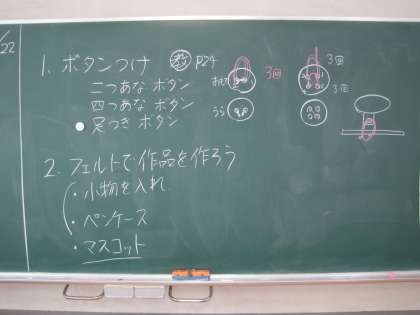 /22
1. ボタンつけ 教 P24
二つあな ボタン
四つあな ボタン
足つき ボタン
おもて 3回 3回
3回
うら
2. フェルトで作品を作ろう
・小物を入れ
・ペンケース
・マスコット